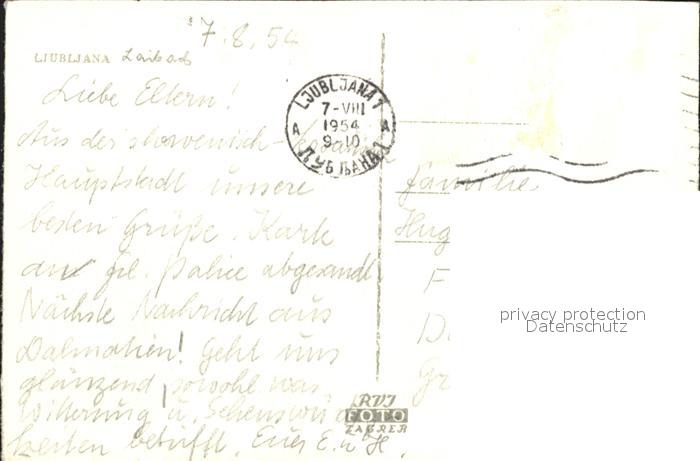 7.8.54
LJUBLJANA Laibach
Liebe Eltern!
Aus der slowenisch-
Hauptstadt unsere
besten Grüße. Karte
an Frl. Police abgesandt
Nächste Nachricht aus
Dalmatien! Geht uns
glänzend, sowohl was
Witterung u. Sehenswürdig
keiten betrifft. Eure E. u H.
LJUBLJANA 1
7-VIII
1954
9-10
A A
ЉУБЉАНА 1
Familie
Hug
F
D
Gr
privacy protection
Datenschutz
RVI
FOTO
ZAGREB